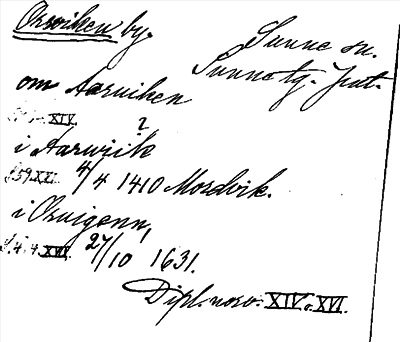 Orrviken by.
Sunne sn.
Sunne tg. Jmt.
om Aarviken
XIV. ?
i Aarwiik
XV. 4/4 1410 Mordvik.
i Orvigenn,
XVI. 27/10 1631.
Dipl. norv. XIV o. XVI.